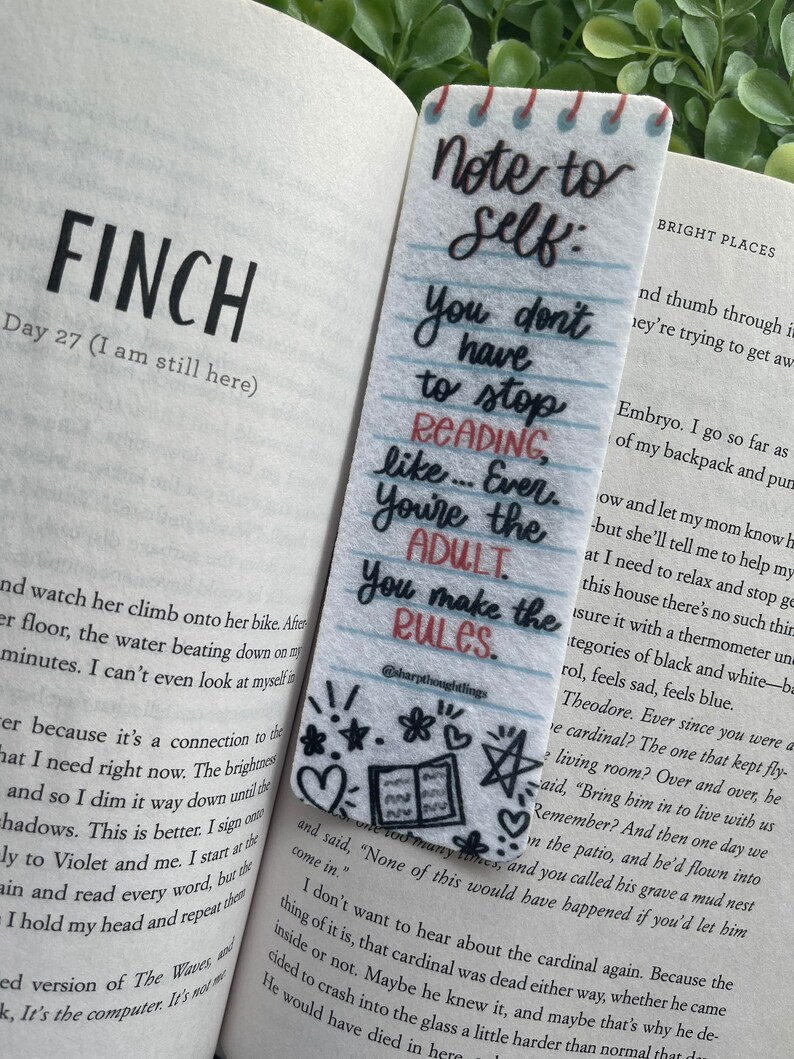 FINCH
Day 27 (I am still here)
nd watch her climb onto her bike. After-
er floor, the water beating down on my
minutes. I can't even look at myself in
ter because it's a connection to the
hat I need right now. The brightness
and so I dim it way down until the
hadows. This is better. I sign onto
ly to Violet and me. I start at the
ain and read every word, but the
I hold my head and repeat them
ed version of The Waves, and
k, It's the computer. It's not me.
Note to
Self:
You don't
have
to stop
READING,
like... Ever.
You're the
ADULT.
You make the
RULES.
@sharpthoughtlings
BRIGHT PLACES
nd thumb through it
hey're trying to get aw
Embryo. I go so far as
of my backpack and pun
ow and let my mom know h
-but she'll tell me to help my
at I need to relax and stop ge
this house there's no such thin
asure it with a thermometer und
ategories of black and white—ba
rol, feels sad, feels blue.
Theodore. Ever since you were a
he cardinal? The one that kept fly-
living room? Over and over, he
said, "Bring him in to live with us
Remember? And then one day we
on the patio, and he'd flown into
one too many times, and you called his grave a mud nest
and said, "None of this would have happened if you'd let him
come in."
I don't want to hear about the cardinal again. Because the
thing of it is, that cardinal was dead either way, whether he came
inside or not. Maybe he knew it, and maybe that's why he de-
cided to crash into the glass a little harder than normal that day.
He would have died in here,